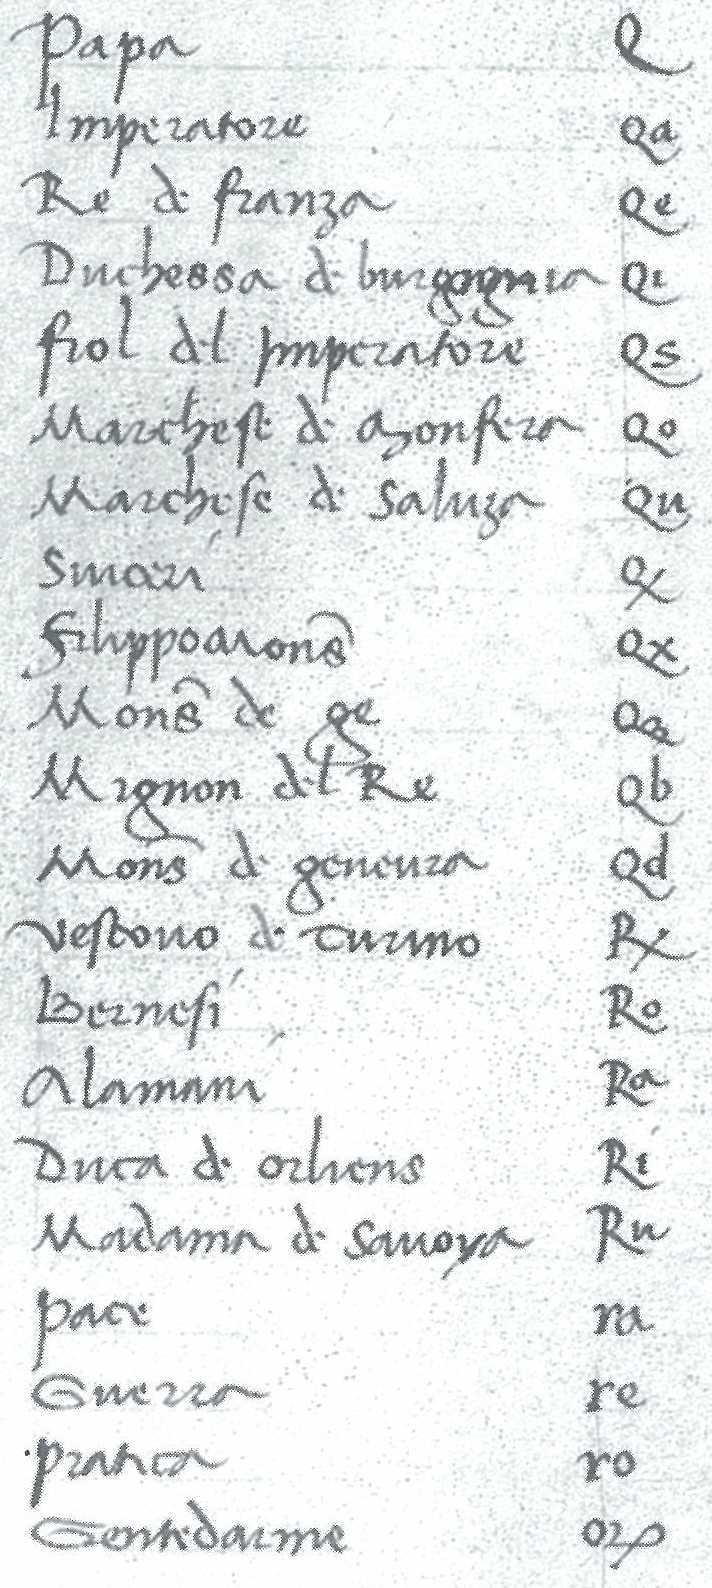 Papa Q
Imperatore Qa
Re de franza Qe
Duchessa de burgogna Qi
fiol del Imperatore Qs
Marchese de Qo
Marchese de Saluza Qu
Q
Qx
Mons de ge Q
Mignon del Re Qb
Mons de geneura Qd
Vescouo de Turino R
Bernesi Ro
Alamani Ra
Duca de orliens Ri
Madama de Sauoya Ru
pace ra
Guerra re
pratica ro
Gentedarme